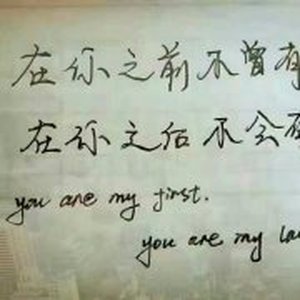 在你之前不曾有
在你之后不会
you are my first.
you are my